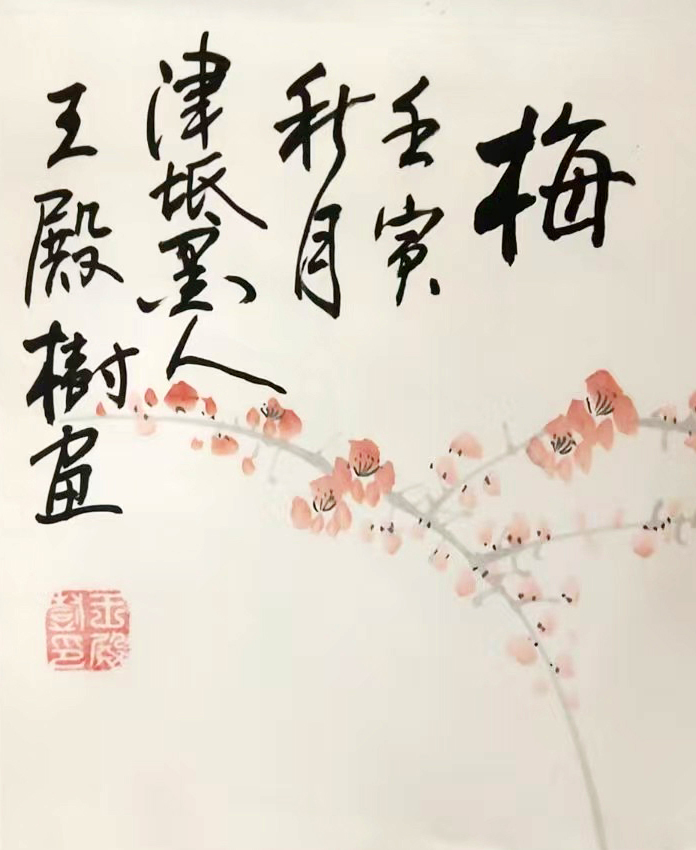 梅
壬寅
秋月
津坻墨人
王殿樹画
王殿
樹印